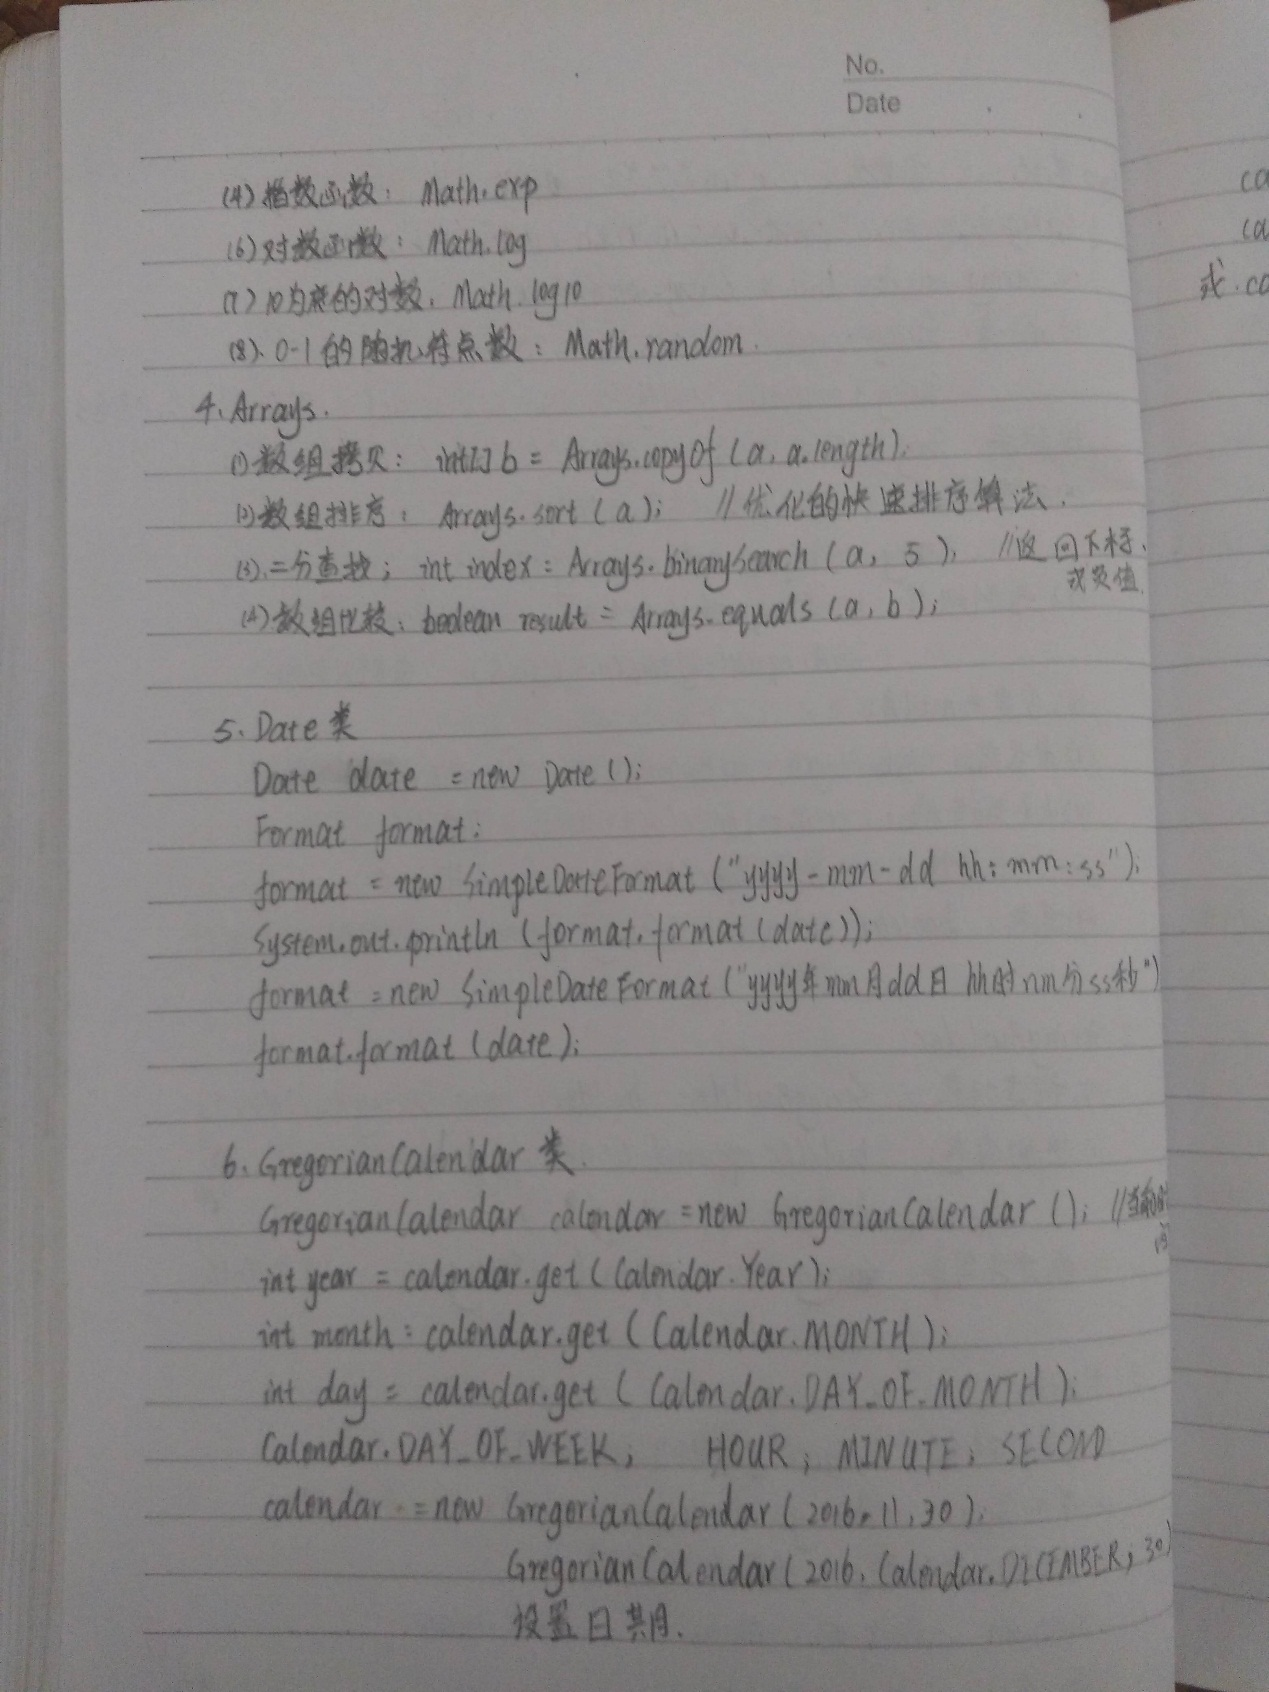 No.
Date
(4)指数函数: Math.exp
(6)对数函数: Math.log
(7)10为底的对数. Math.log10
(8). 0-1的随机浮点数: Math.random.
4. Arrays.
(1)数组拷贝: int[] b = Arrays.copyOf (a, a.length).
(2)数组排序: Arrays.sort (a); //优化的快速排序算法.
(3).二分查找; int index = Arrays.binarySearch (a, 5), //返回下标、
或负值.
(4)数组比较: boolean result = Arrays.equals (a, b);
5. Date类
Date date = new Date ();
Format format;
format = new SimpleDateFormat ("yyyy-mm-dd hh:mm:ss");
System.out.println (format.format (date));
format = new SimpleDateFormat ("yyyy年mm月dd日 hh时mm分ss秒")
format.format (date);
6. GregorianCalendar 类.
GregorianCalendar calendar = new GregorianCalendar (); //当前时
间
int year = calendar.get (Calendar.Year);
int month = calendar.get (Calendar.MONTH);
int day = calendar.get (Calendar.DAY_OF_MONTH);
Calendar.DAY_OF_WEEK, HOUR, MINUTE, SECOND
calendar = new GregorianCalendar (2016, 11, 30).
GregorianCalendar (2016, Calendar.DECEMBER, 30)
设置日期.
ca
ca
或.ca